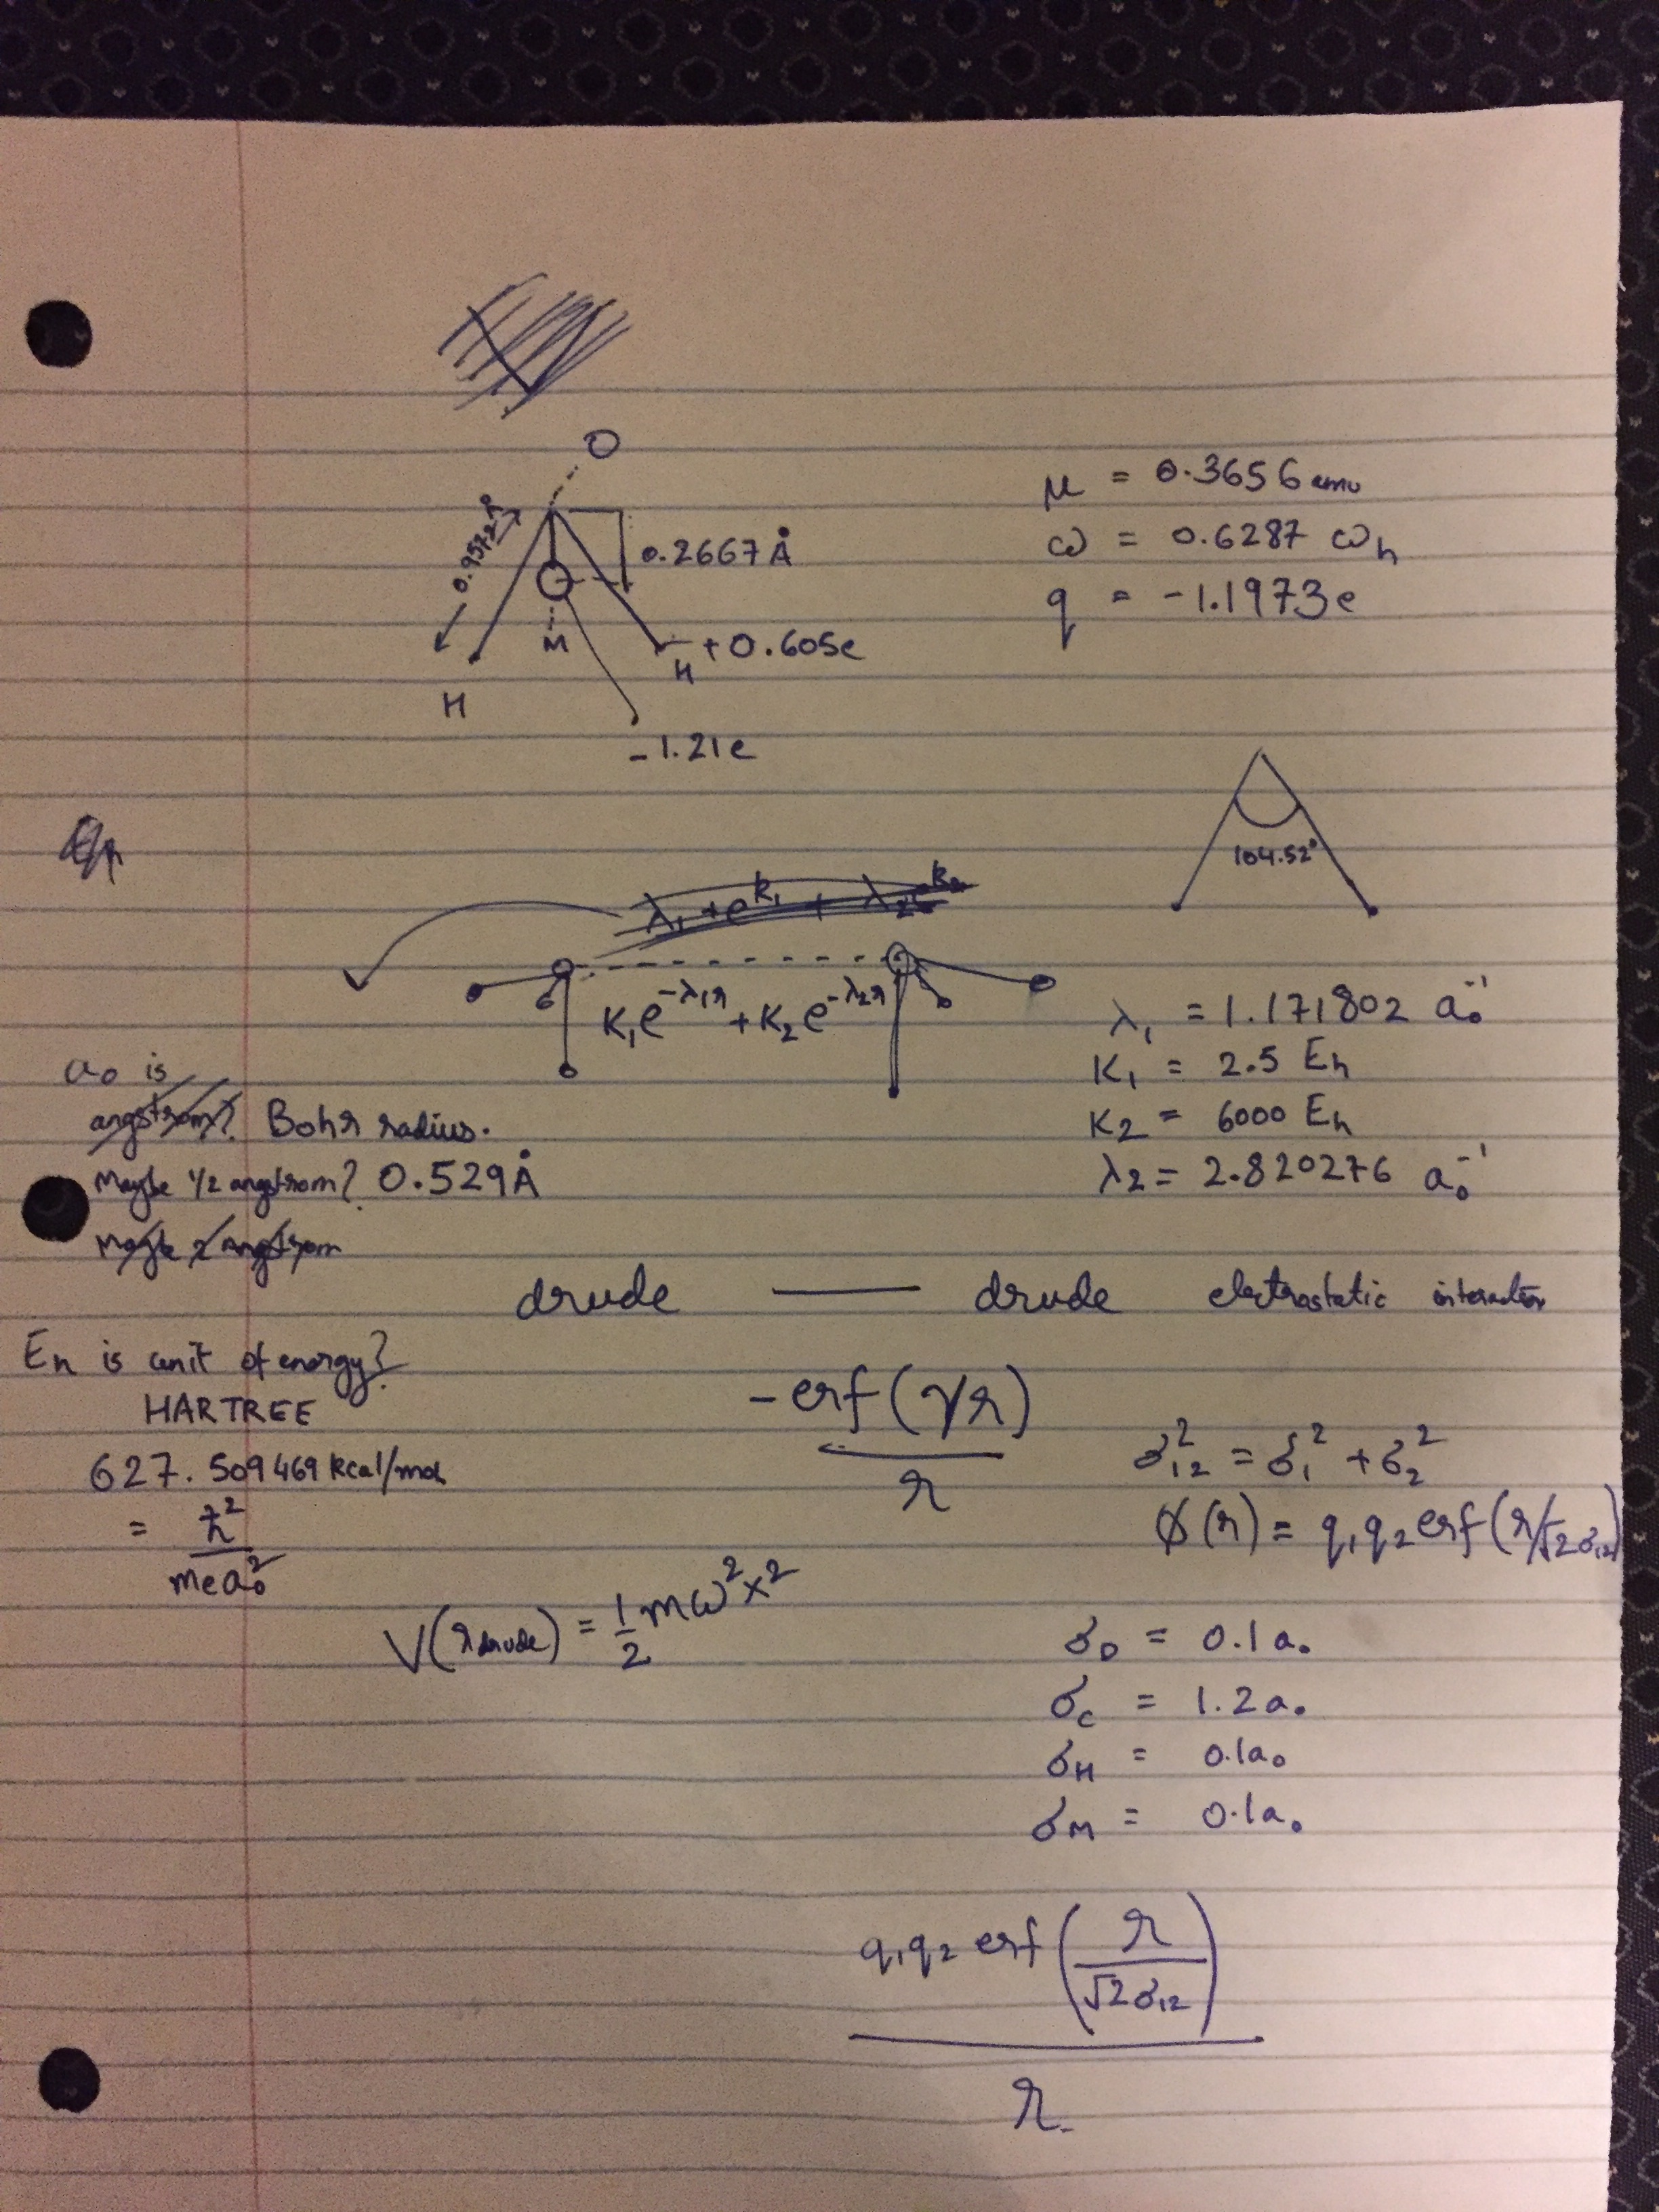 O
0.9572 Å
0.2667 Å
M
H
H
+0.605e
-1.21e
μ = 0.3656 amu
ω = 0.6287 ωh
q = -1.1973e
104.52°
λ₁ + e^k₁ + λ₂e^k₂
K₁e^-λ₁r + K₂e^-λ₂r
λ₁ = 1.171802 a₀⁻¹
K₁ = 2.5 Eh
K₂ = 6000 Eh
λ₂ = 2.820276 a₀⁻¹
a₀ is
angstrom? Bohr radius.
Maybe 1/2 angstrom? 0.529Å
Maybe 2 angstrom
drude — drude electrostatic interaction
Eh is unit of energy?
HARTREE
627.509469 kcal/mol
= ħ²/mea₀²
-erf(γr)/r
σ₁₂² = σ₁² + σ₂²
ϕ(r) = q₁q₂ erf(r/√2σ₁₂)
V(rdrude) = 1/2 mω²x²
σD = 0.1a₀
σc = 1.2a₀
σH = 0.1a₀
σM = 0.1a₀
q₁q₂ erf(r/√2σ₁₂)
r